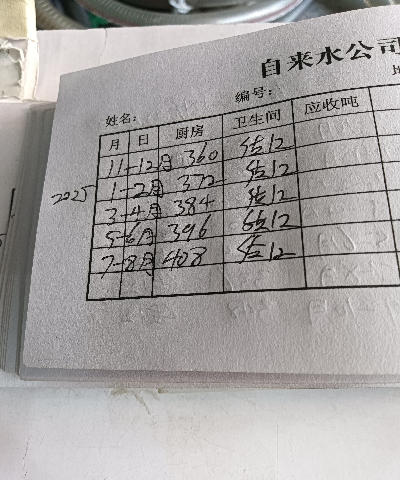 自来水公司
姓名: 编号:
月 日 厨房 卫生间 应收吨
11-12月 360 估12
2025 1-2月 372 估12
3-4月 384 估12
5-6月 396 估12
7-8月 408 估12